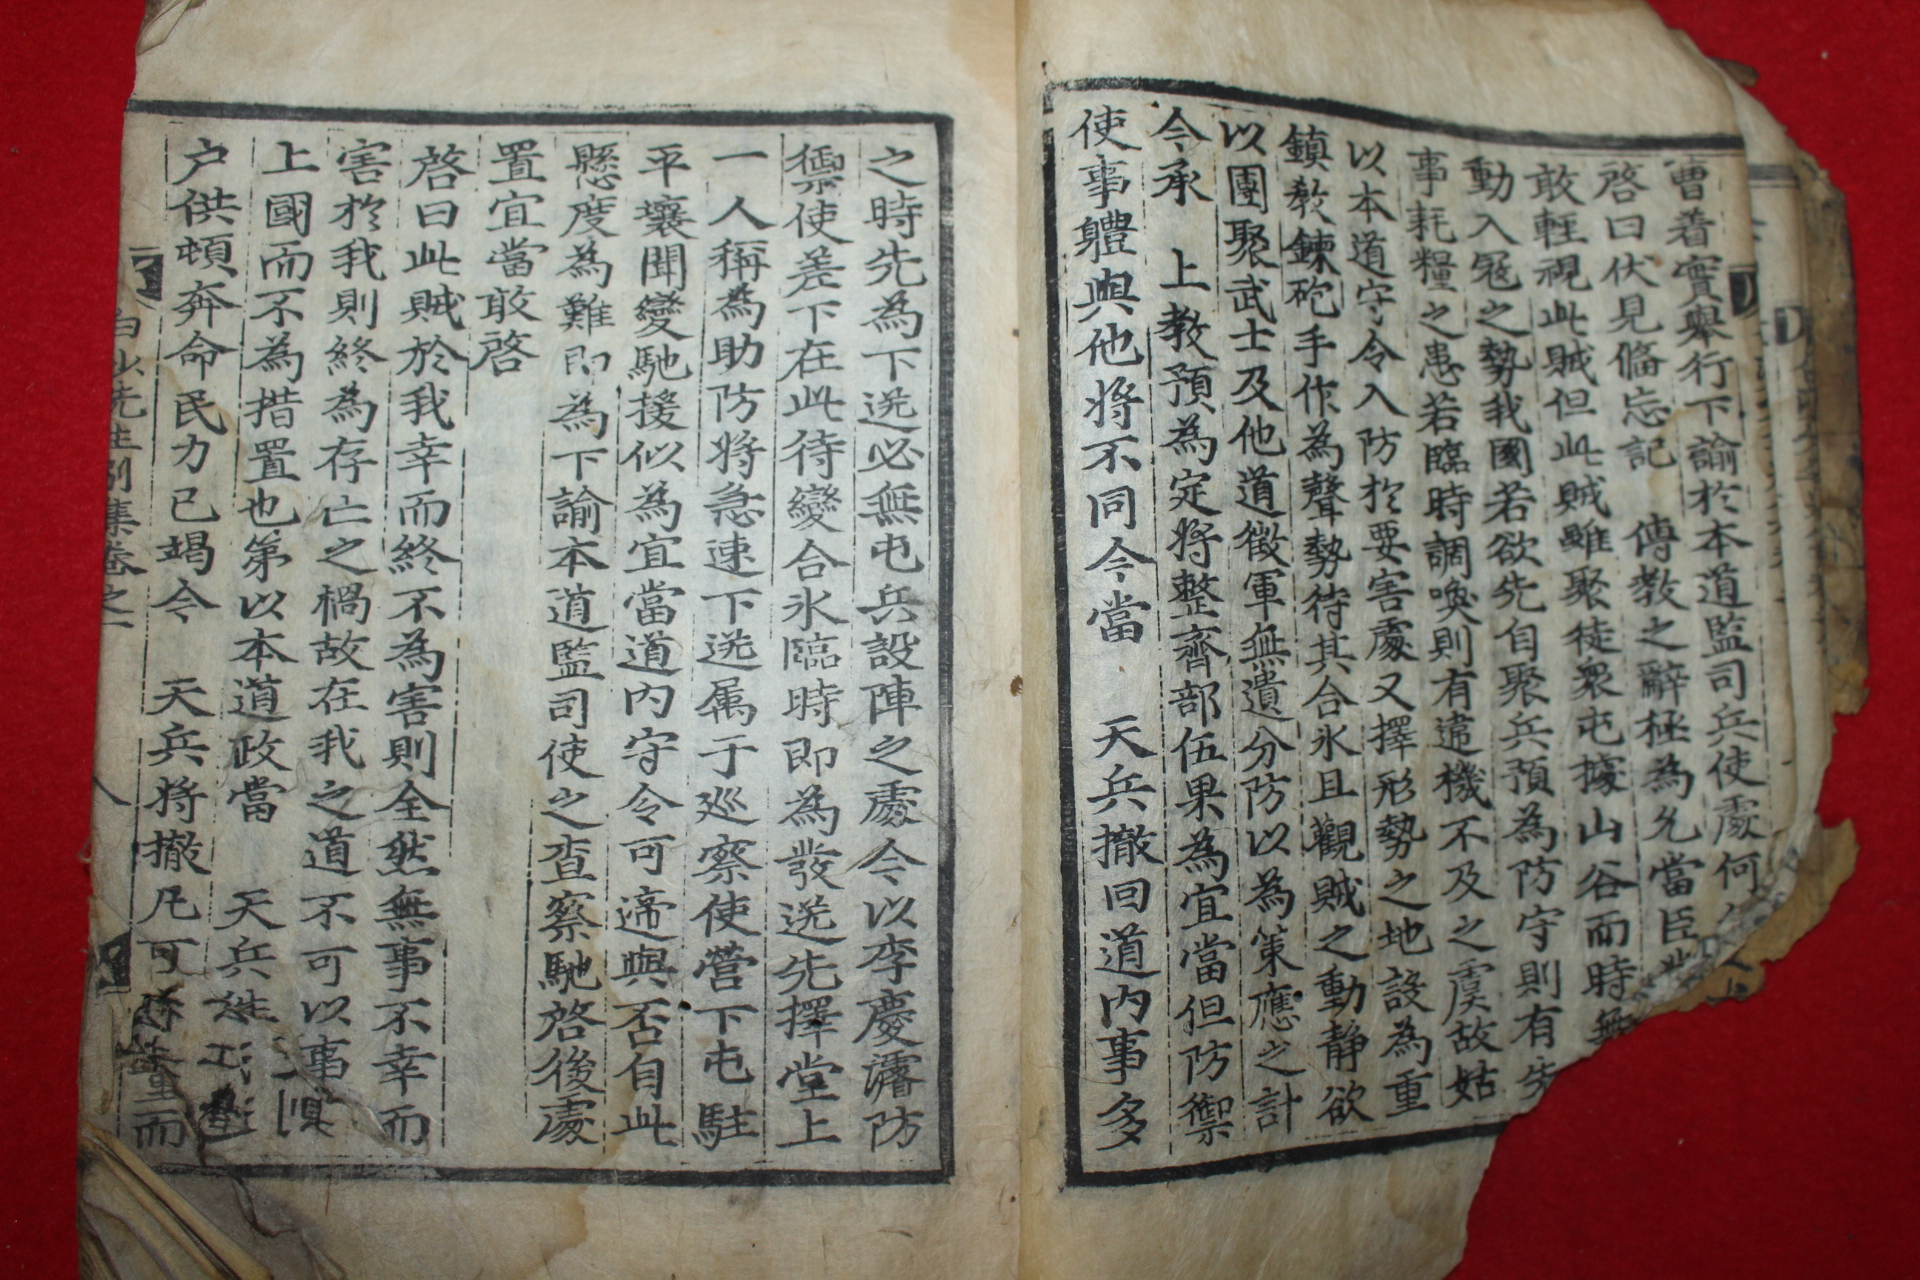 曹着實舉行下諭於本道監司兵使處何
啓曰伏見備忘記 傳教之辭極為允當臣
敢輕視此賊但此賊雖聚徒衆屯據山谷而時無
動入冦之勢我國若欲先自聚兵預為防守則有
事耗糧之患若臨時調喚則有違機不及之虞故姑
以本道守令入防於要害處又擇形勢之地設為重
鎮教鍊砲手作為聲勢待其合氷且觀賊之動静欲
以團聚武士及他道徵軍無遺分防以為策應之計
今承 上教預為定將整齊部伍果為宜當但防禦
使事軆與他將不同今當 天兵撤回道内事多
之時先為下送必無屯兵設陣之處今以李慶濬防
禦使差下在此待變合氷臨時即為發送先擇堂上
一人稱為助防將急速下送属于巡察使營下屯駐
平壤聞變馳援似為宜當道内守令可遆與否自此
懸度為難即為下諭本道監司使之查察馳啓後處
置宜當敢啓
啓曰此賊於我幸而終不為害則全然無事不幸而
害於我則終為存亡之禍故在我之道不可以事
上國而不為措置也第以本道政當 天兵
户供頓奔命民力已竭今 天兵將撤凡可
白沙先生別集卷之一